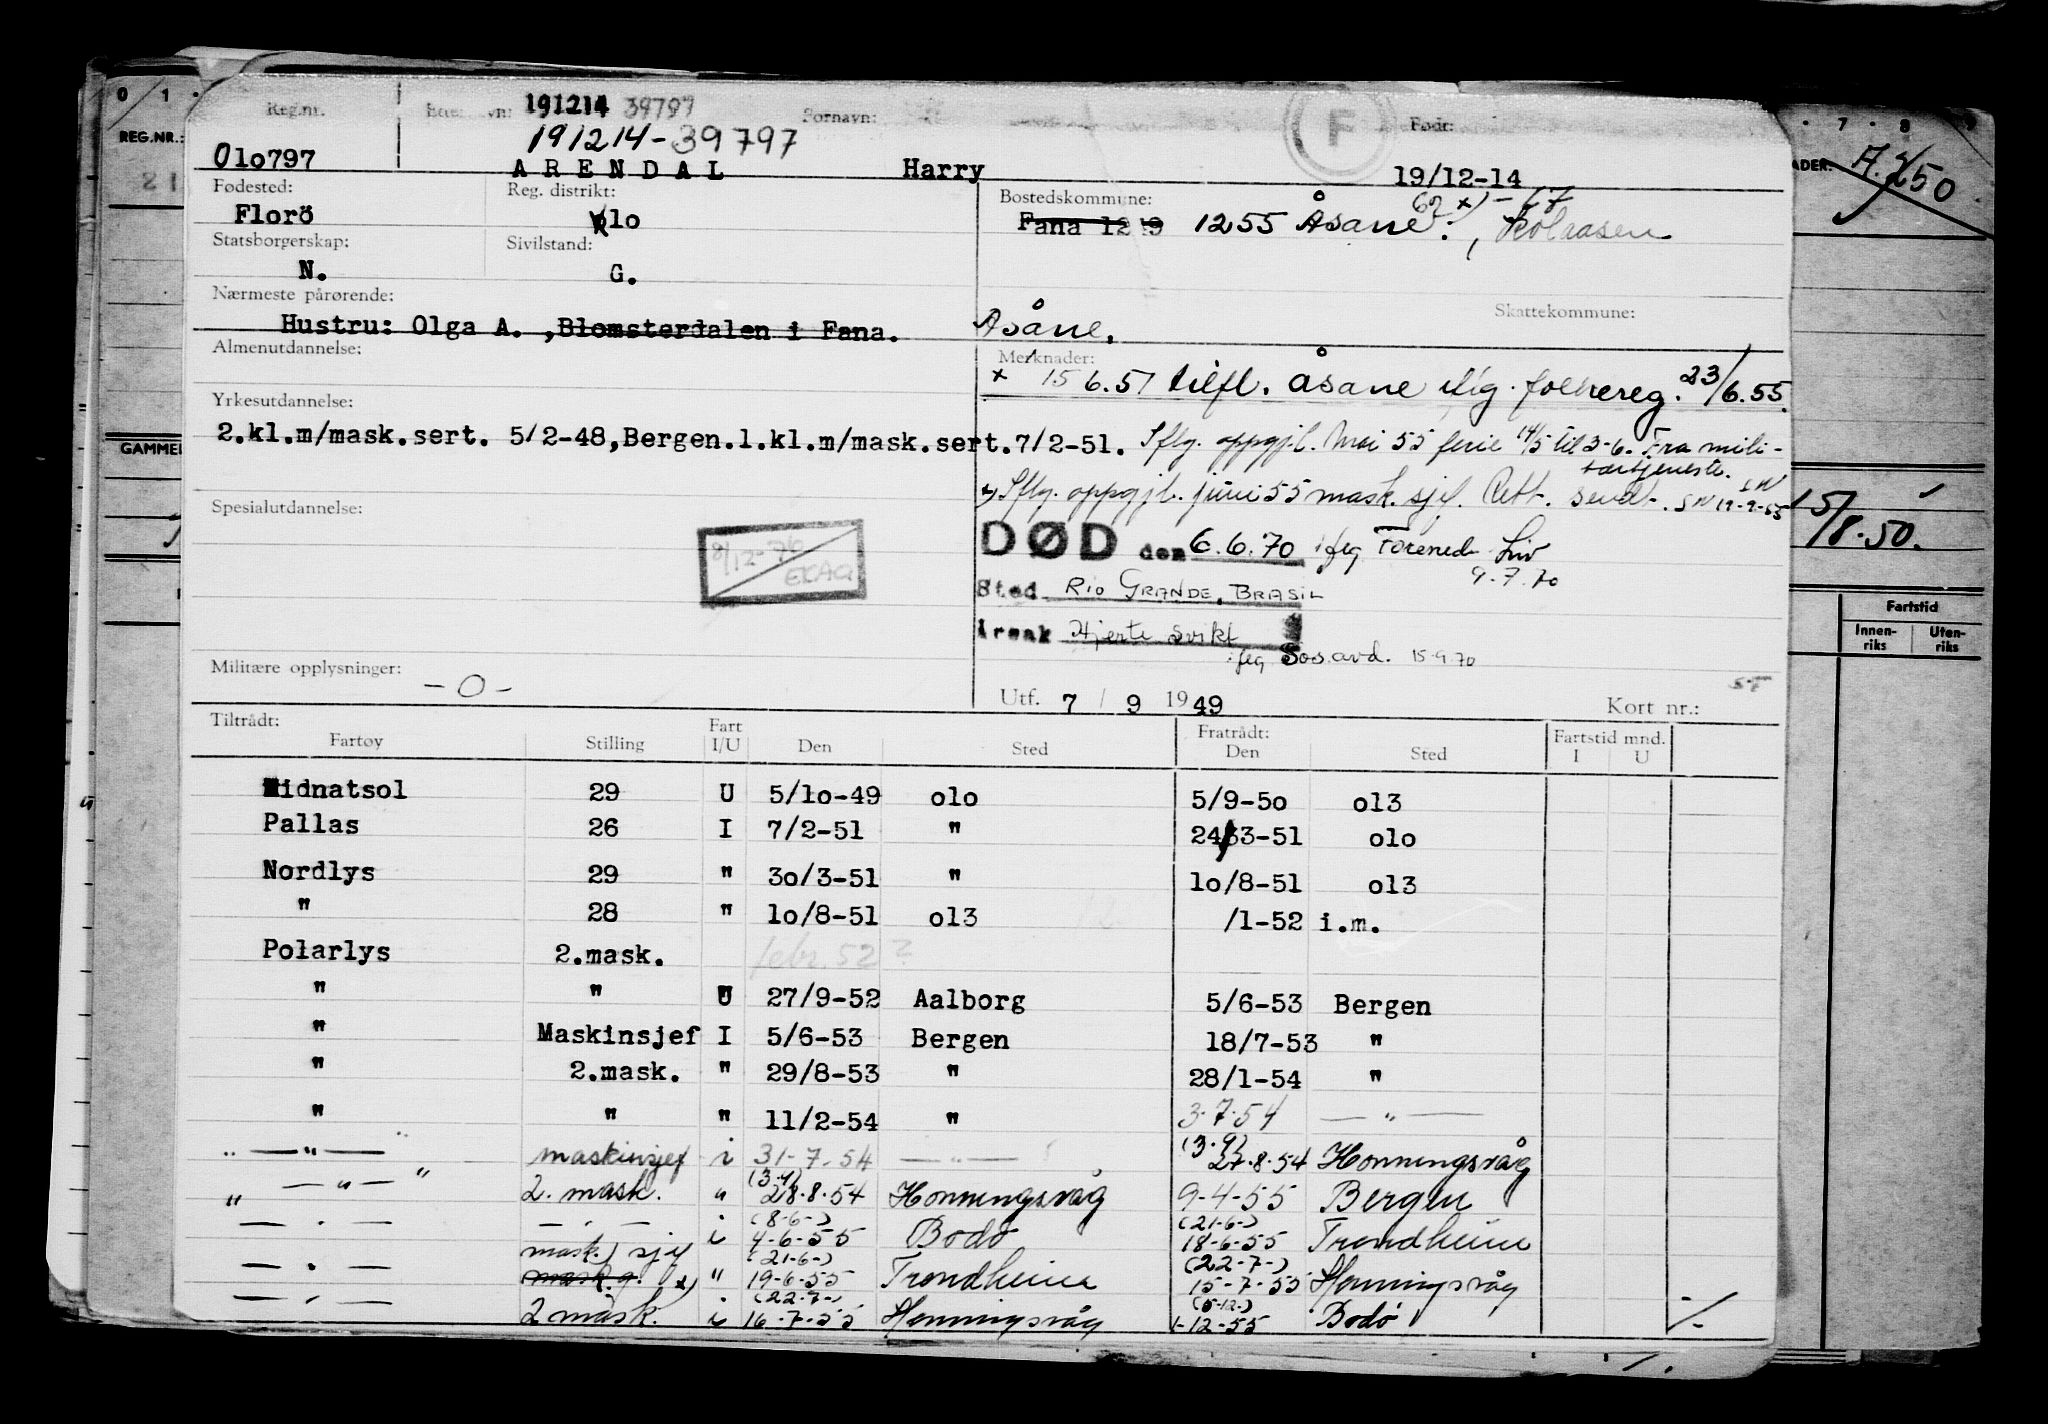 0 1
REG.NR.:
21
GAMMEL
7 · 8 · 9
A. 2/50
15/8.50.
Fartstid
Innen-
riks
Uten-
riks
Reg.nr.
191214 39797
Fornavn:
F
Født:
191214-39797
Olo797
ARENDAL Harry 19/12-14
Fødested:
Reg. distrikt:
Bostedskommune:
Florö
olo
Fana 1249 1255 Åsane
Statsborgerskap:
Sivilstand:
N.
G.
Nærmeste pårørende:
Skattekommune:
Hustru: Olga A. ,Blomsterdalen i Fana. Åsåne,
Almenutdannelse:
Merknader:
x 15 6.51 tilfl. Åsane iflg. folkereg. 23/6.55.
Yrkesutdannelse:
2.kl.m/mask.sert. 5/2-48,Bergen.1.kl.m/mask.sert.7/2-51. Iflg. oppgjl. Mai 55 ferie 14/5 til 3-6. Fra mili-
tærtjeneste.
x) Iflg. oppgjl. juni 55 mask. sjef. Rett. sendt. SW 19-9-55
Spesialutdannelse:
9/12-76
EKAG
DØD den 6.6.70 ifg Forened Liv
9.7.70
Sted RIO GRANDE, BRASIL
Årsak Hjerte svikt
ifg Sos.avd. 15.9.70
Militære opplysninger:
-0-
Utf. 7 / 9 1949
Kort nr.:
Tiltrådt:
Fartøy Stilling Fart I/U Den Sted Fratrådt: Den Sted Fartstid mnd. I U
Midnatsol 29 U 5/10-49 olo 5/9-50 ol3
Pallas 26 I 7/2-51 " 24/3-51 olo
Nordlys 29 " 30/3-51 " 10/8-51 ol3
" 28 " 10/8-51 ol3 /1-52 i.m.
Polarlys 2.mask. febr. 52?
" " U 27/9-52 Aalborg 5/6-53 Bergen
" Maskinsjef I 5/6-53 Bergen 18/7-53 "
" 2.mask. " 29/8-53 " 28/1-54 "
" " " 11/2-54 " 3.7.54 — " —
— " — maskinsjef i 31-7-54 — " — (3.9) 27.8.54 Honningsvåg
" — " — " 2. mask. " (3.9) 28.8.54 Honningsvåg 9-4-55 Bergen
— " — — " — i (8-6-) 4-6-55 Bodø (21-6-) 18-6-55 Trondheim
— " — mask. sjef mask.g. x) " (21-6-) 19-6-55 Trondheim (22-7-) 15-7-55 Honningsvåg
— " — 2 mask. i (22.7-) 16-7-55 Honningsvåg (5-12-) 1-12-55 Bodø